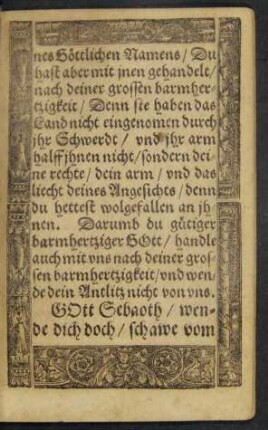 nes Göttlichen Namens / Du
hast aber mit jnen gehandelt /
nach deiner grossen barmher-
tzigkeit / Denn sie haben das
Land nicht eingenomen durch
jhr Schwerdt / vnd jhr arm
halff jhnen nicht / sondern dei-
ne rechte / dein arm / vnd das
liecht deines Angesichts / denn
du hettest wolgefallen an jh-
nen. Darumb du gütiger
barmhertziger GOtt / handle
auch mit vns nach deiner gros-
sen barmhertzigkeit / vnd wen-
de dein Antlitz nicht von vns.
GOtt Sebaoth / wen-
de dich doch / schawe vom